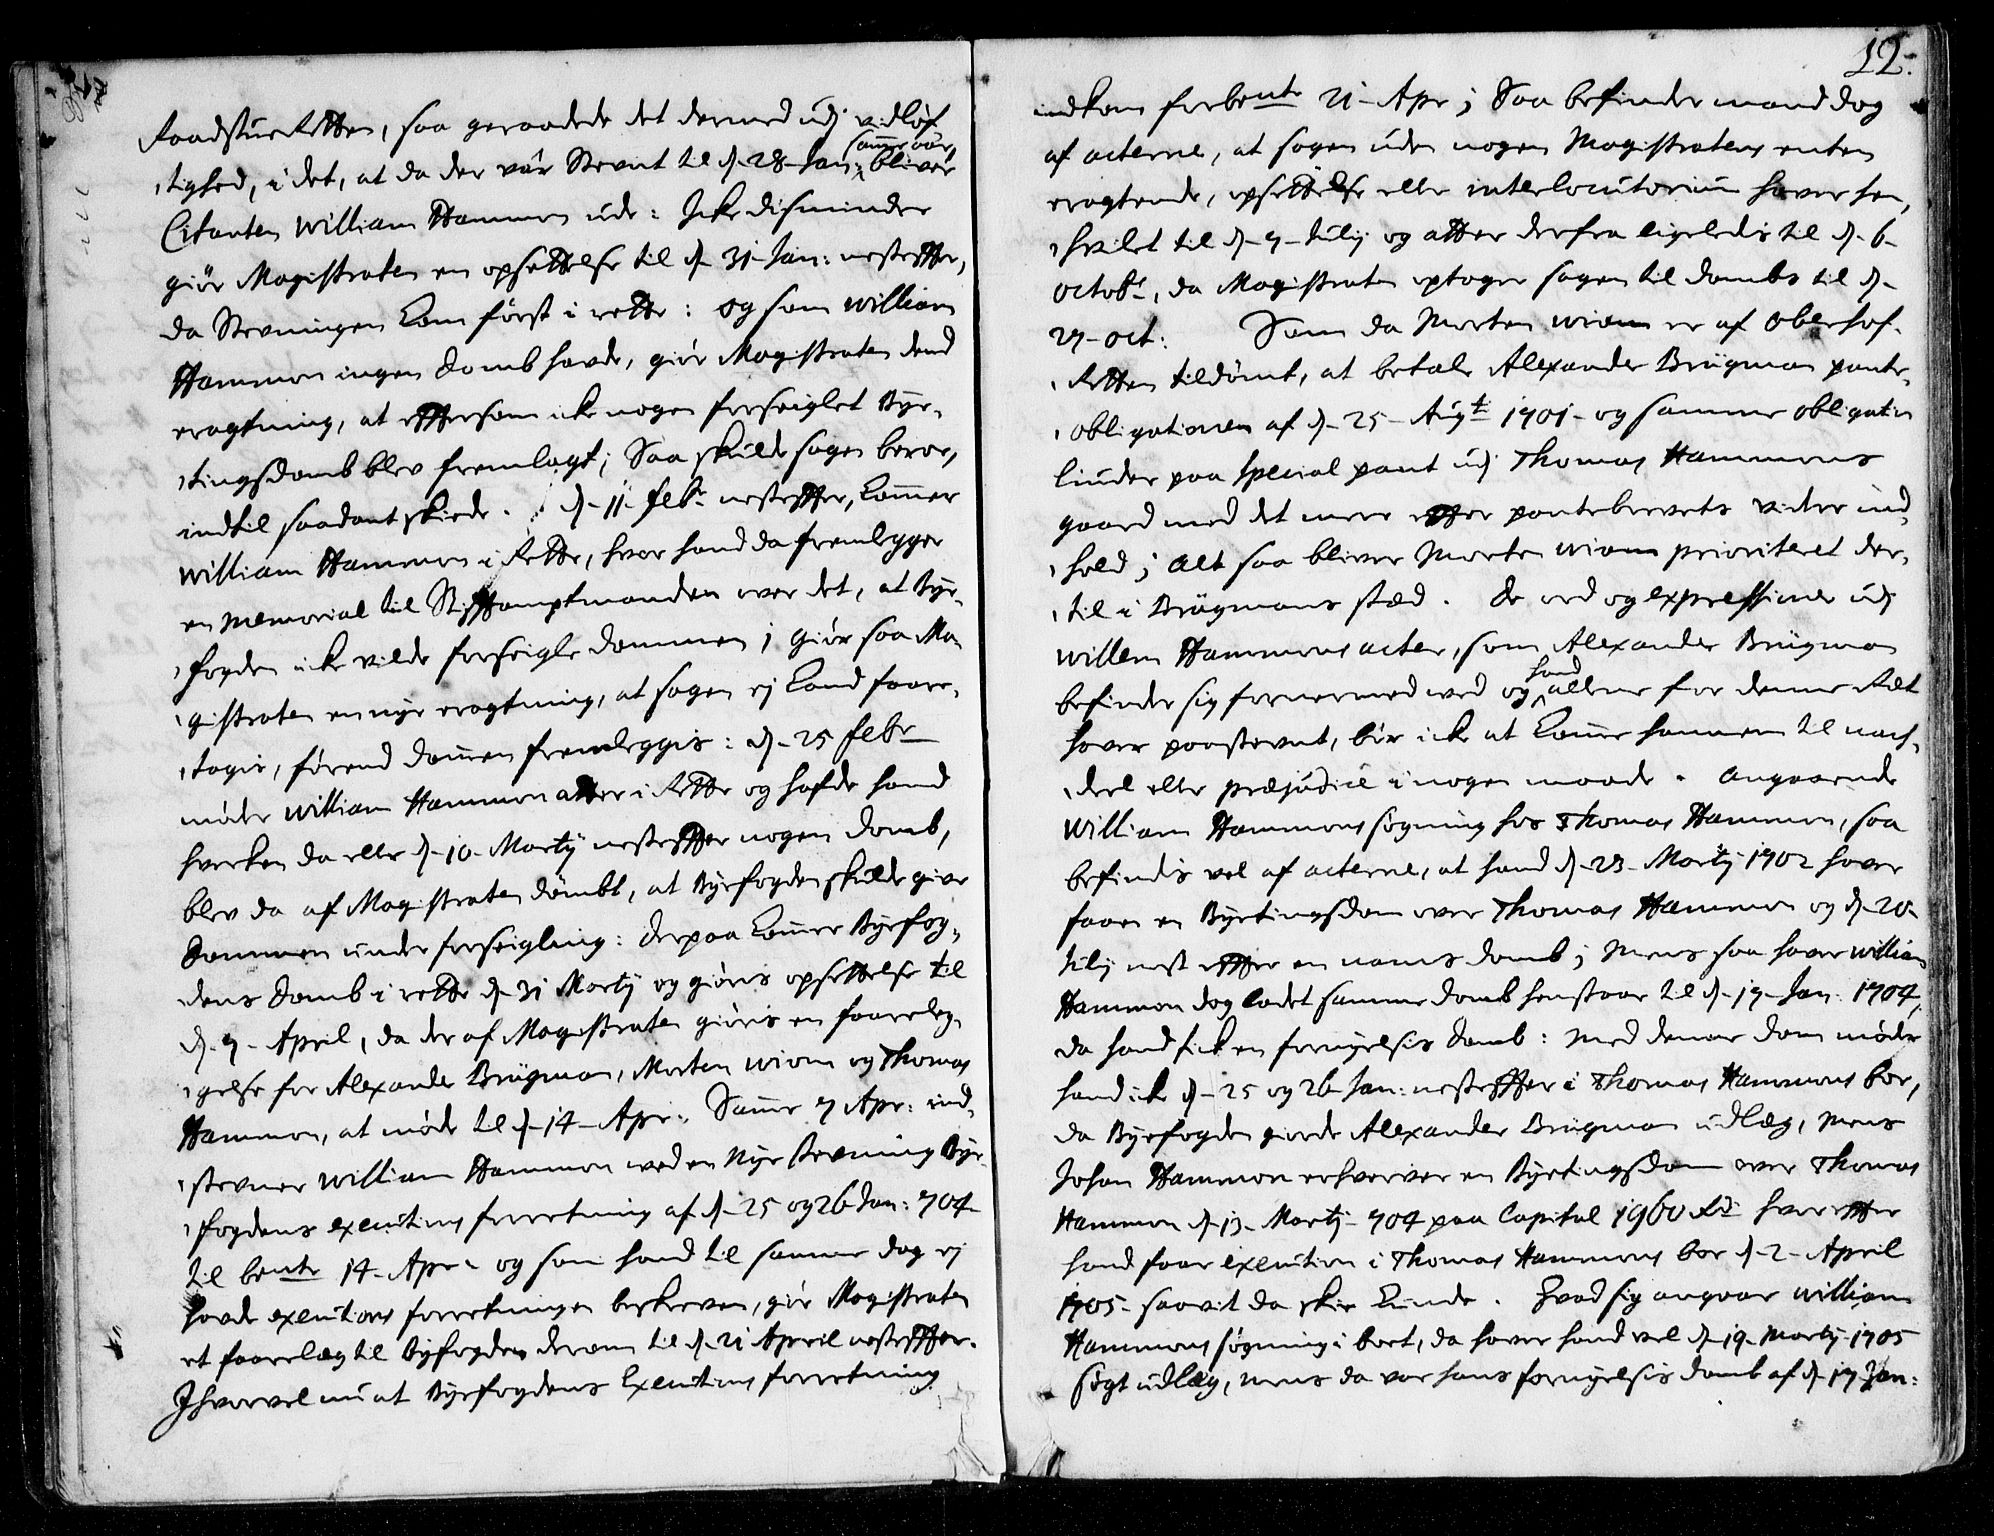 Raadstue Retten, saa geraadede det dermed udj vidløf,
tighed, i det, at da der var Stevnt til d. 28 Jan: samme aar, bliver
Citanten William Hammon ude: Icke disminder
giör Magistraten en opsettelse til d. 31 Jan: nestefter,
da Stevningen Kom först i rette: og som William
Hammon ingen domb hafde, giör Magistraten dend
eragtning, at eftersom icke nogen forseiglet Bye,
tingsdomb blev fremlagt; Saa skulde sagen beroe,
indtil saadant skeede. d. 11 febr nestefter, Kommer
William Hammon i Rette, hvor hand da fremlegger
en Memorial til Stiftamptmanden over det, at Bye,
fogden icke vilde forseigle dommen; giör saa Ma,
gistraten en nye eragtning, at sagen ej Kand foare,
tagis, förend dommen fremleggis: d. 25 febr
möder William Hammon atter i Rette og hafde hand
hverken da eller d. 10 Martij nestefter nogen domb,
blev da af Magistraten dömbt, at Byefogden skulde give
dommen under forseigling: derpaa Kommer Byefog,
dens domb i rette d. 31 Martij og giöris opsettelse til
d. 7 April, da der af Magistraten giöris en foareleg,
gelse for Alexander Brügman, Morten Wiom og Thomas
Hammon, at möde til d. 14 Apr: Samme 7 Apr: ind,
stevner William Hammon ved en Nye stevning Bye,
fogdens executions forretning af d. 25 og 26 Jan: 704
til bente 14 Apr: og som hand til samme dag ej
hafde executions forretningen beskreven, giör Magistraten
et foarelæg til Byfogden derom til d. 21 April nestefter.
Ihvorvel nu at Byefogdens Executions forretning
12.
indkom forbente 21 Apr; Saa befinder mand dog
af acterne, at sagen uden nogen Magistratens enten
eragtende, opsettelse eller interlocutorium haver hen,
hvilet til d. 7 Julij og atter derfra ligeledis til d. 6
octobr, da Magistraten optager sagen til dombs til d.
27 oct: Som da Morten Wiom er af Oberhof,
Retten tildömt, at betale Alexander Brügman pante,
obligationen af d. 25 Augti 1701 og samme obligation
liuder paa special pant udj Thomas Hammons
gaard med det mere efter pantebrevets vider ind,
hold; Alt saa bliver Morten Wiom prioriteret der,
til i Brügmans sted. De ord og expressioner udj
Willem Hammons acter, som Alexander Brügman
befinder sig fornermed ved og hand allene for denne Ret
haver paastevnt, bör icke at Komme hannem til nach,
deel eller præjudice i nogen maade. Angaaende
William Hammons sögning hos Thomas Hammon, saa
befindis vel af acterne, at hand d. 23 Martij 1702 haver
faaen en Byetingsdom over Thomas Hammon og d. 20
Julij nest efter en nams domb; Mens saa haver William
Hammon dog ladet samme domb henstaae til d. 17 Jan: 1704,
da hand fick en fornyelsis domb: Med denne dom möder
hand icke d. 25 og 26 Jan: nestefter i Thomas Hammons boe,
da Byefogden giorde Alexander Brügman udlæg, Mens
Johan Hammon erhverver en Byetingsdom over Thomas
Hammon d. 13 Martij 704 paa Capital 1960 Rd hvorefter
hand faar execution i Thomas Hammons boe d. 2 April
1705 saavit da skee Kunde. Hvad sig angaar William
Hammons sögning i boet, da haver hand vel d. 19 Martij 1705
sögt udlæg, mens da var hans fornyelsis domb af d. 17 Jan: